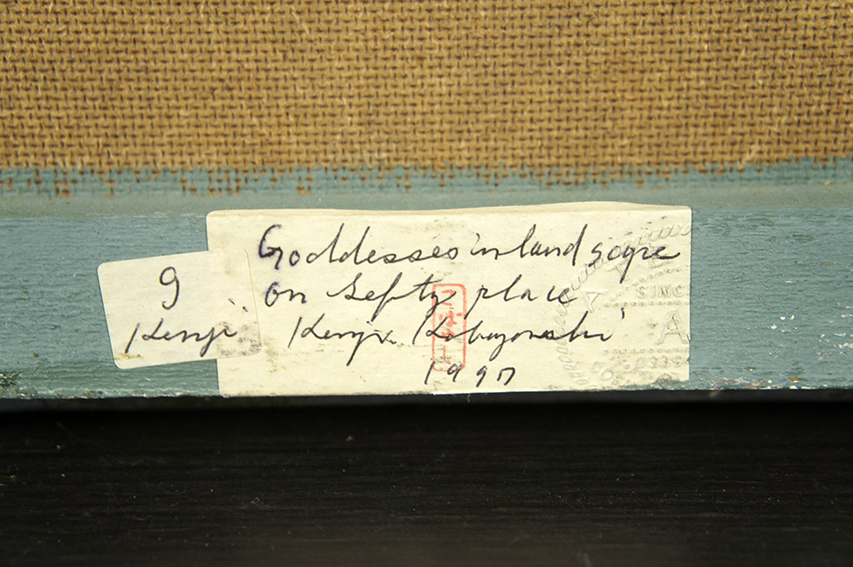 9
Kenji
Goddesses in land scape
on Sefty place
Kenji Kobayashi
1997
SINC
A